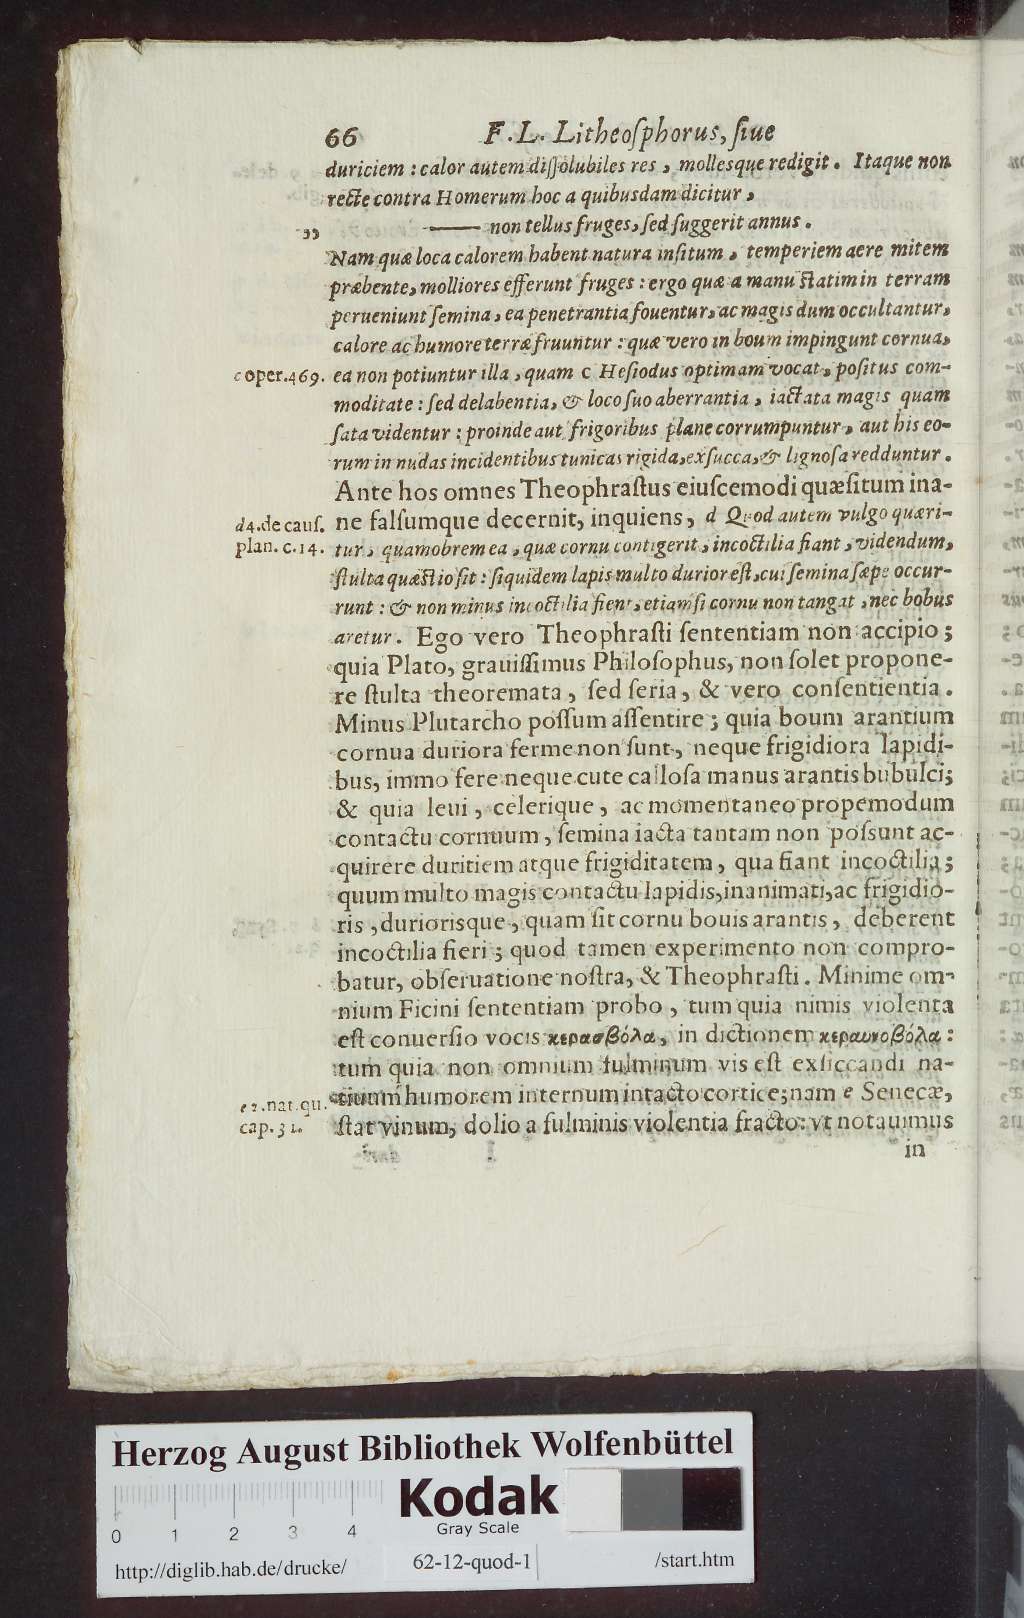 66 F. L. Litheoſphorus, ſiue
duriciem : calor autem diſſolubiles res , molleſque redigit . Itaque non
recte contra Homerum hoc a quibusdam dicitur ,
„ —— non tellus fruges, ſed ſuggerit annus .
Nam quæ loca calorem habent natura inſitum , temperiem aere mitem
præbente, molliores efferunt fruges : ergo quæ a manu ſtatim in terram
perueniunt ſemina , ea penetrantia fouentur, ac magis dum occultantur,
calore ac humore terræ fruuntur : quæ vero in boum impingunt cornua,
c oper.469. ea non potiuntur illa , quam c Heſiodus optimam vocat , poſitus com-
moditate : ſed delabentia, & loco ſuo aberrantia , iactata magis quam
ſata videntur : proinde aut frigoribus plane corrumpuntur , aut his eo-
rum in nudas incidentibus tunicas rigida, exſucca, & lignoſa redduntur .
Ante hos omnes Theophraſtus eiuſcemodi quæſitum ina-
d 4. de cauſ. ne falſumque decernit, inquiens, d Quod autem vulgo quæri-
plan. c. 14. tur , quamobrem ea , quæ cornu contigerit , incoctilia fiant , videndum,
ſtulta quæſtio ſit : ſiquidem lapis multo durior eſt, cui ſemina ſæpe occur-
runt : & non minus incoctilia fient, etiamſi cornu non tangat , nec bobus
aretur . Ego vero Theophraſti ſententiam non accipio ;
quia Plato, grauiſſimus Philoſophus, non ſolet propone-
re ſtulta theoremata , ſed ſeria , & vero conſentientia .
Minus Plutarcho poſſum aſſentire ; quia boum arantium
cornua duriora ferme non ſunt , neque frigidiora lapidi-
bus, immo fere neque cute calloſa manus arantis bubulci;
& quia leui , celerique , ac momentaneo propemodum
contactu cornuum , ſemina iacta tantam non poſſunt ac-
quirere duritiem atque frigiditatem , qua fiant incoctilia ;
quum multo magis contactu lapidis, inanimati, ac frigidio-
ris , duriorisque , quam ſit cornu bouis arantis , deberent
incoctilia fieri ; quod tamen experimento non compro-
batur, obſeruatione noſtra, & Theophraſti . Minime om-
nium Ficini ſententiam probo , tum quia nimis violenta
eſt conuerſio vocis κερασβόλα, in dictionem κεραυνοβόλα :
tum quia non omnium fulminum vis eſt exſiccandi na-
e 2. nat. qu. tiuum humorem internum intacto cortice; nam e Senecæ,
cap. 31. ſtat vinum, dolio a fulminis violentia fracto: vt notauimus
in
Herzog August Bibliothek Wolfenbüttel
Kodak
Gray Scale
0 1 2 3 4
http://diglib.hab.de/drucke/ 62-12-quod-1 /start.htm